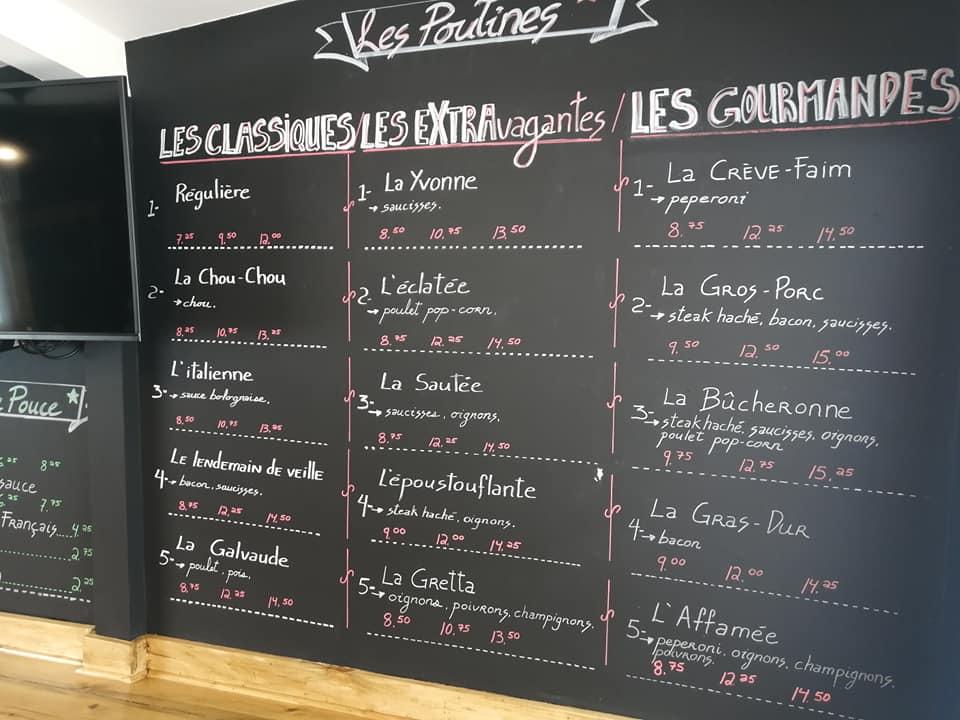 Les Poutines
LES CLASSIQUES / LES EXTRAvagantes / LES GOURMANDES
1- Régulière
7.25 9.50 12.00
2- La Chou-Chou
→ chou.
8.25 10.75 13.25
L'italienne
3- → sauce bolognaise.
8.50 10.75 13.25
Le lendemain de veille
4- → bacon, saucisses.
8.75 12.25 14.50
La Galvaude
5- → poulet, pois.
8.75 12.25 14.50
1- La Yvonne
→ saucisses.
8.50 10.75 13.50
2- L'éclatée
→ poulet pop-corn.
8.75 12.25 14.50
La Sautée
3- → saucisses, oignons.
8.75 12.25 14.50
L'époustouflante
4- → steak haché, oignons.
9.00 12.00 14.25
La Gretta
5- → oignons, poivrons, champignons.
8.50 10.75 13.50
1- La Crève-Faim
→ peperoni
8.75 12.25 14.50
La Gros-Porc
2- → steak haché, bacon, saucisses.
9.50 12.50 15.00
La Bûcheronne
3- → steak haché, saucisses, oignons,
poulet pop-corn
9.75 12.75 15.25
La Gras-Dur
4- → bacon
9.00 12.00 14.25
L'Affamée
5- → peperoni, oignons, champignons,
poivrons.
8.75 12.25 14.50
Pouce
8.25
sauce
7.75
Français.....4.25
2.75
2.25